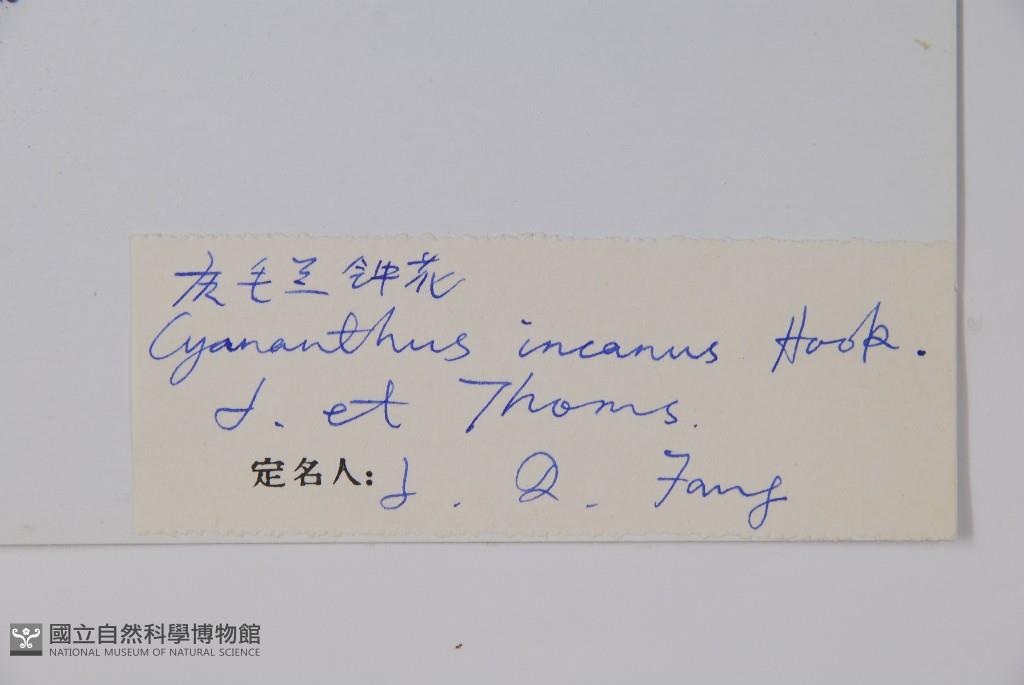 灰毛兰钟花
Cyananthus incanus Hook.
f. et Thoms.
定名人: J. Q. Fang
國立自然科學博物館
NATIONAL MUSEUM OF NATURAL SCIENCE